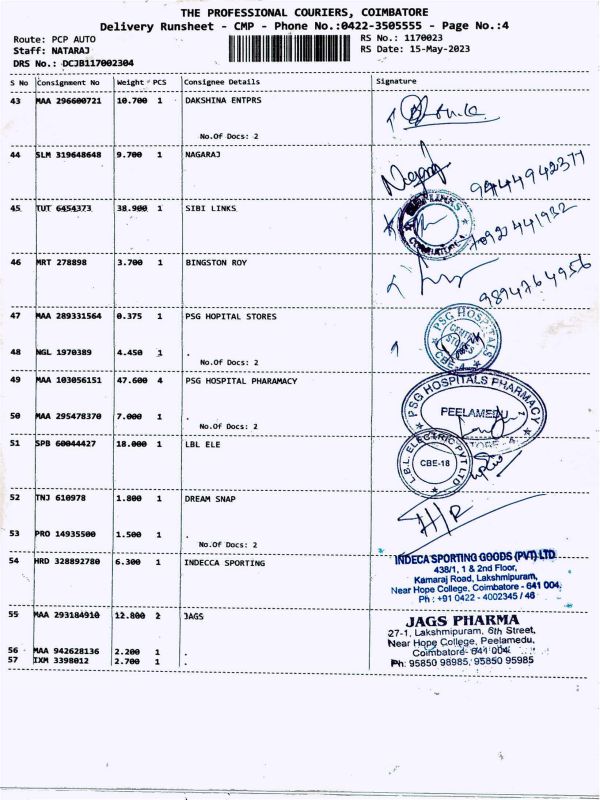 THE PROFESSIONAL COURIERS, COIMBATORE
Delivery Runsheet - CMP - Phone No.:0422-3505555 - Page No.:4
Route: PCP AUTO
RS No.: 1170023
Staff: NATARAJ
RS Date: 15-May-2023
DRS No.: DCJB117002304
S No Consignment No Weight PCS Consignee Details Signature
43 MAA 296600721 10.700 1 DAKSHINA ENTPRS
No.Of Docs: 2
44 SLM 319648648 9.700 1 NAGARAJ
Nagaraj
9444942371
45 TUT 6454373 38.900 1 SIBI LINKS
COIMBATORE
7092441932
46 MRT 278898 3.700 1 BINGSTON ROY
9894764956
47 MAA 289331564 0.375 1 PSG HOPITAL STORES
PSG HOSPITALS
48 NGL 1970389 4.450 1 .
No.Of Docs: 2
49 MAA 103056151 47.600 4 PSG HOSPITAL PHARAMACY
PSG HOSPITALS PHARMACY
PEELAMEDU
50 MAA 295478370 7.000 1 .
No.Of Docs: 2
51 SPB 60044427 18.000 1 LBL ELE
L.B.L. ELECTRIC PVT LTD
CBE-18
52 TNJ 610978 1.800 1 DREAM SNAP
H/R
53 PRO 14935500 1.500 1 .
No.Of Docs: 2
54 HRD 328892780 6.300 1 INDECCA SPORTING
INDECA SPORTING GOODS (PVT) LTD
438/1, 1 & 2nd Floor,
Kamaraj Road, Lakshmipuram,
Near Hope College, Coimbatore - 641 004.
Ph : +91 0422 - 4002345 / 46
55 MAA 293184910 12.800 2 JAGS
JAGS PHARMA
27-1, Lakshmipuram, 6th Street,
Near Hope College, Peelamedu,
Coimbatore- 641 004.
Ph: 95850 98985, 95850 95985
56 MAA 942628136 2.200 1 .
57 IXM 3398012 2.700 1 .